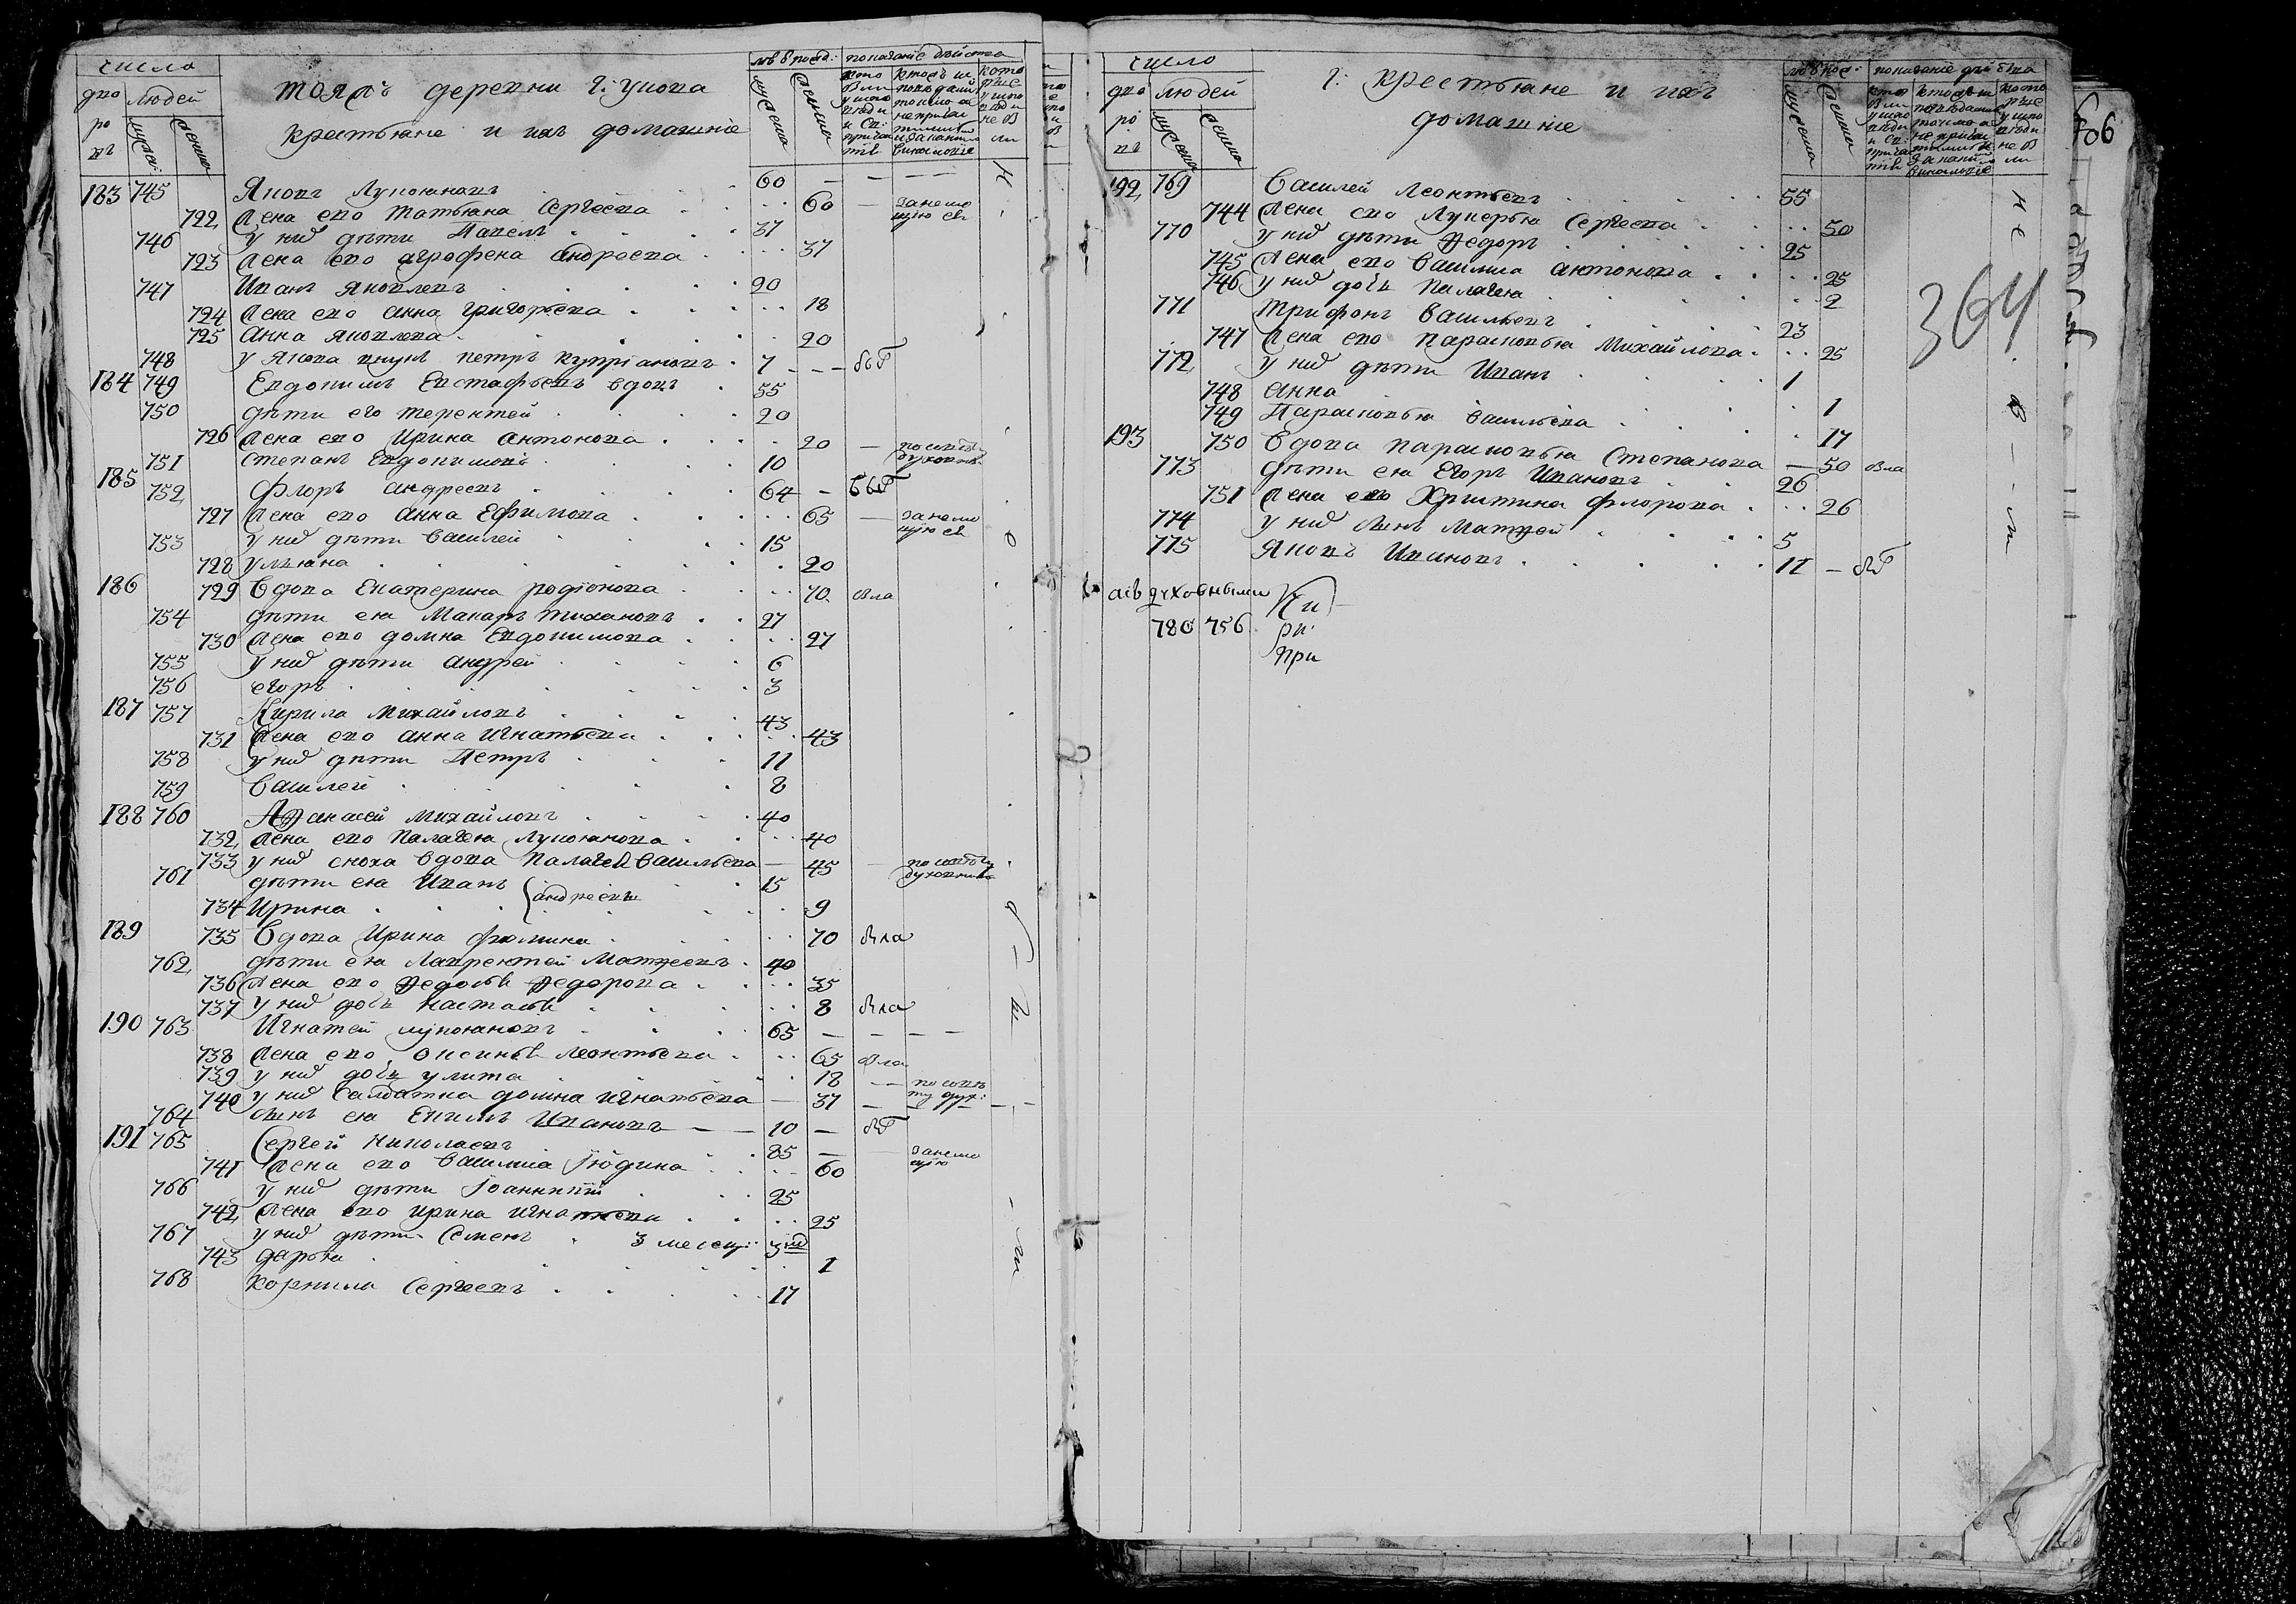 число
дво ро въ
людей
мужеска
женска
тояжъ деревни г: Ушова
крестьяне и ихъ домашніе
183 745 Яковъ Лукояновъ 60 — — —
722 жена ево Татьяна Сергеева 60 — занемо щію ев
746 у них дѣти Павелъ 37
723 жена ево агрофена андреева 37
747 Иванъ яковлевъ 20
724 жена ево анна григорьева 18
725 анна яковлева 20
748 у якова внукъ петръ купріяновъ 7 — — — был
184 749 Евдокимъ Евстафьевъ вдовъ 55
750 дѣти его терентей 20
726 жена ево Ирина антонова 20 —
751 степанъ Евдокимовъ 10
185 752 Флоръ андреевъ 64 — был
727 жена ево анна Ефимова 65 — занемо щію ев
753 у них дѣти василей 15
728 ульяна 20
186 729 вдова Екатерина родіонова 70 была
754 дѣти ея Макаръ тихановъ 27
730 жена ево домна Евдокимова 27
755 у них дѣти андрей 6
756 егоръ 3
187 757 Кирила михайловъ 43
731 жена ево анна игнатьева 43
758 у них дѣти Петръ 11
759 василей 8
188 760 Афанасей михайловъ 40
732 жена ево палагея лукоянова 40
733 у них сноха вдова палагея васильева — 45
761 дѣти ея Иванъ 15
андреевы
734 Ирина 9
189 735 вдова Ирина фомина 70 была
762 дѣти ея лаврентей матфеевъ 40
736 жена ево федосья федорова 35
737 у них дочь настасья 8 была
190 763 Игнатей лукояновъ 65 — — — —
738 жена ево оксинья леонтьева 65 была
739 у них дочь улита 18 — — по совѣ ту дух:
740 у них салдатка домна игнатьева — 37 — — — —
764 сынъ ея Екимъ Ивановъ — — 10 — был
191 765 Сергей николаевъ 85 —
741 жена ево василиса Іюдина 60 занемо щію
766 у них дѣти Іоанникій 25
742 жена ево ирина игнатьева 25
767 у них дѣти Семенъ 3 месец: 3
743 дарья 1
768 корнила сергеевъ 17
число
дво ро въ
людей
мужеска
женска
г: крестьяне и ихъ
домашніе
406
364
192 769 василей леонтьевъ 55
744 жена ево лукерья сергеева 50
770 у них дѣти федоръ 25
745 жена ево василиса антонова 25
746 у них дочь палагея 2
771 трифонъ васильевъ 23
747 жена ево парасковья михайлова 25
772 у них дѣти Иванъ 1
748 анна 1
749 парасковья васильева 17
193 750 вдова парасковья степанова — 50 была
773 дѣти ея Егоръ Ивановъ 26
751 жена ево Христина флорова 26
774 у них сынъ матфей 5
775 яковъ Ивановъ 11 — был
асъ духовными
780 756
при